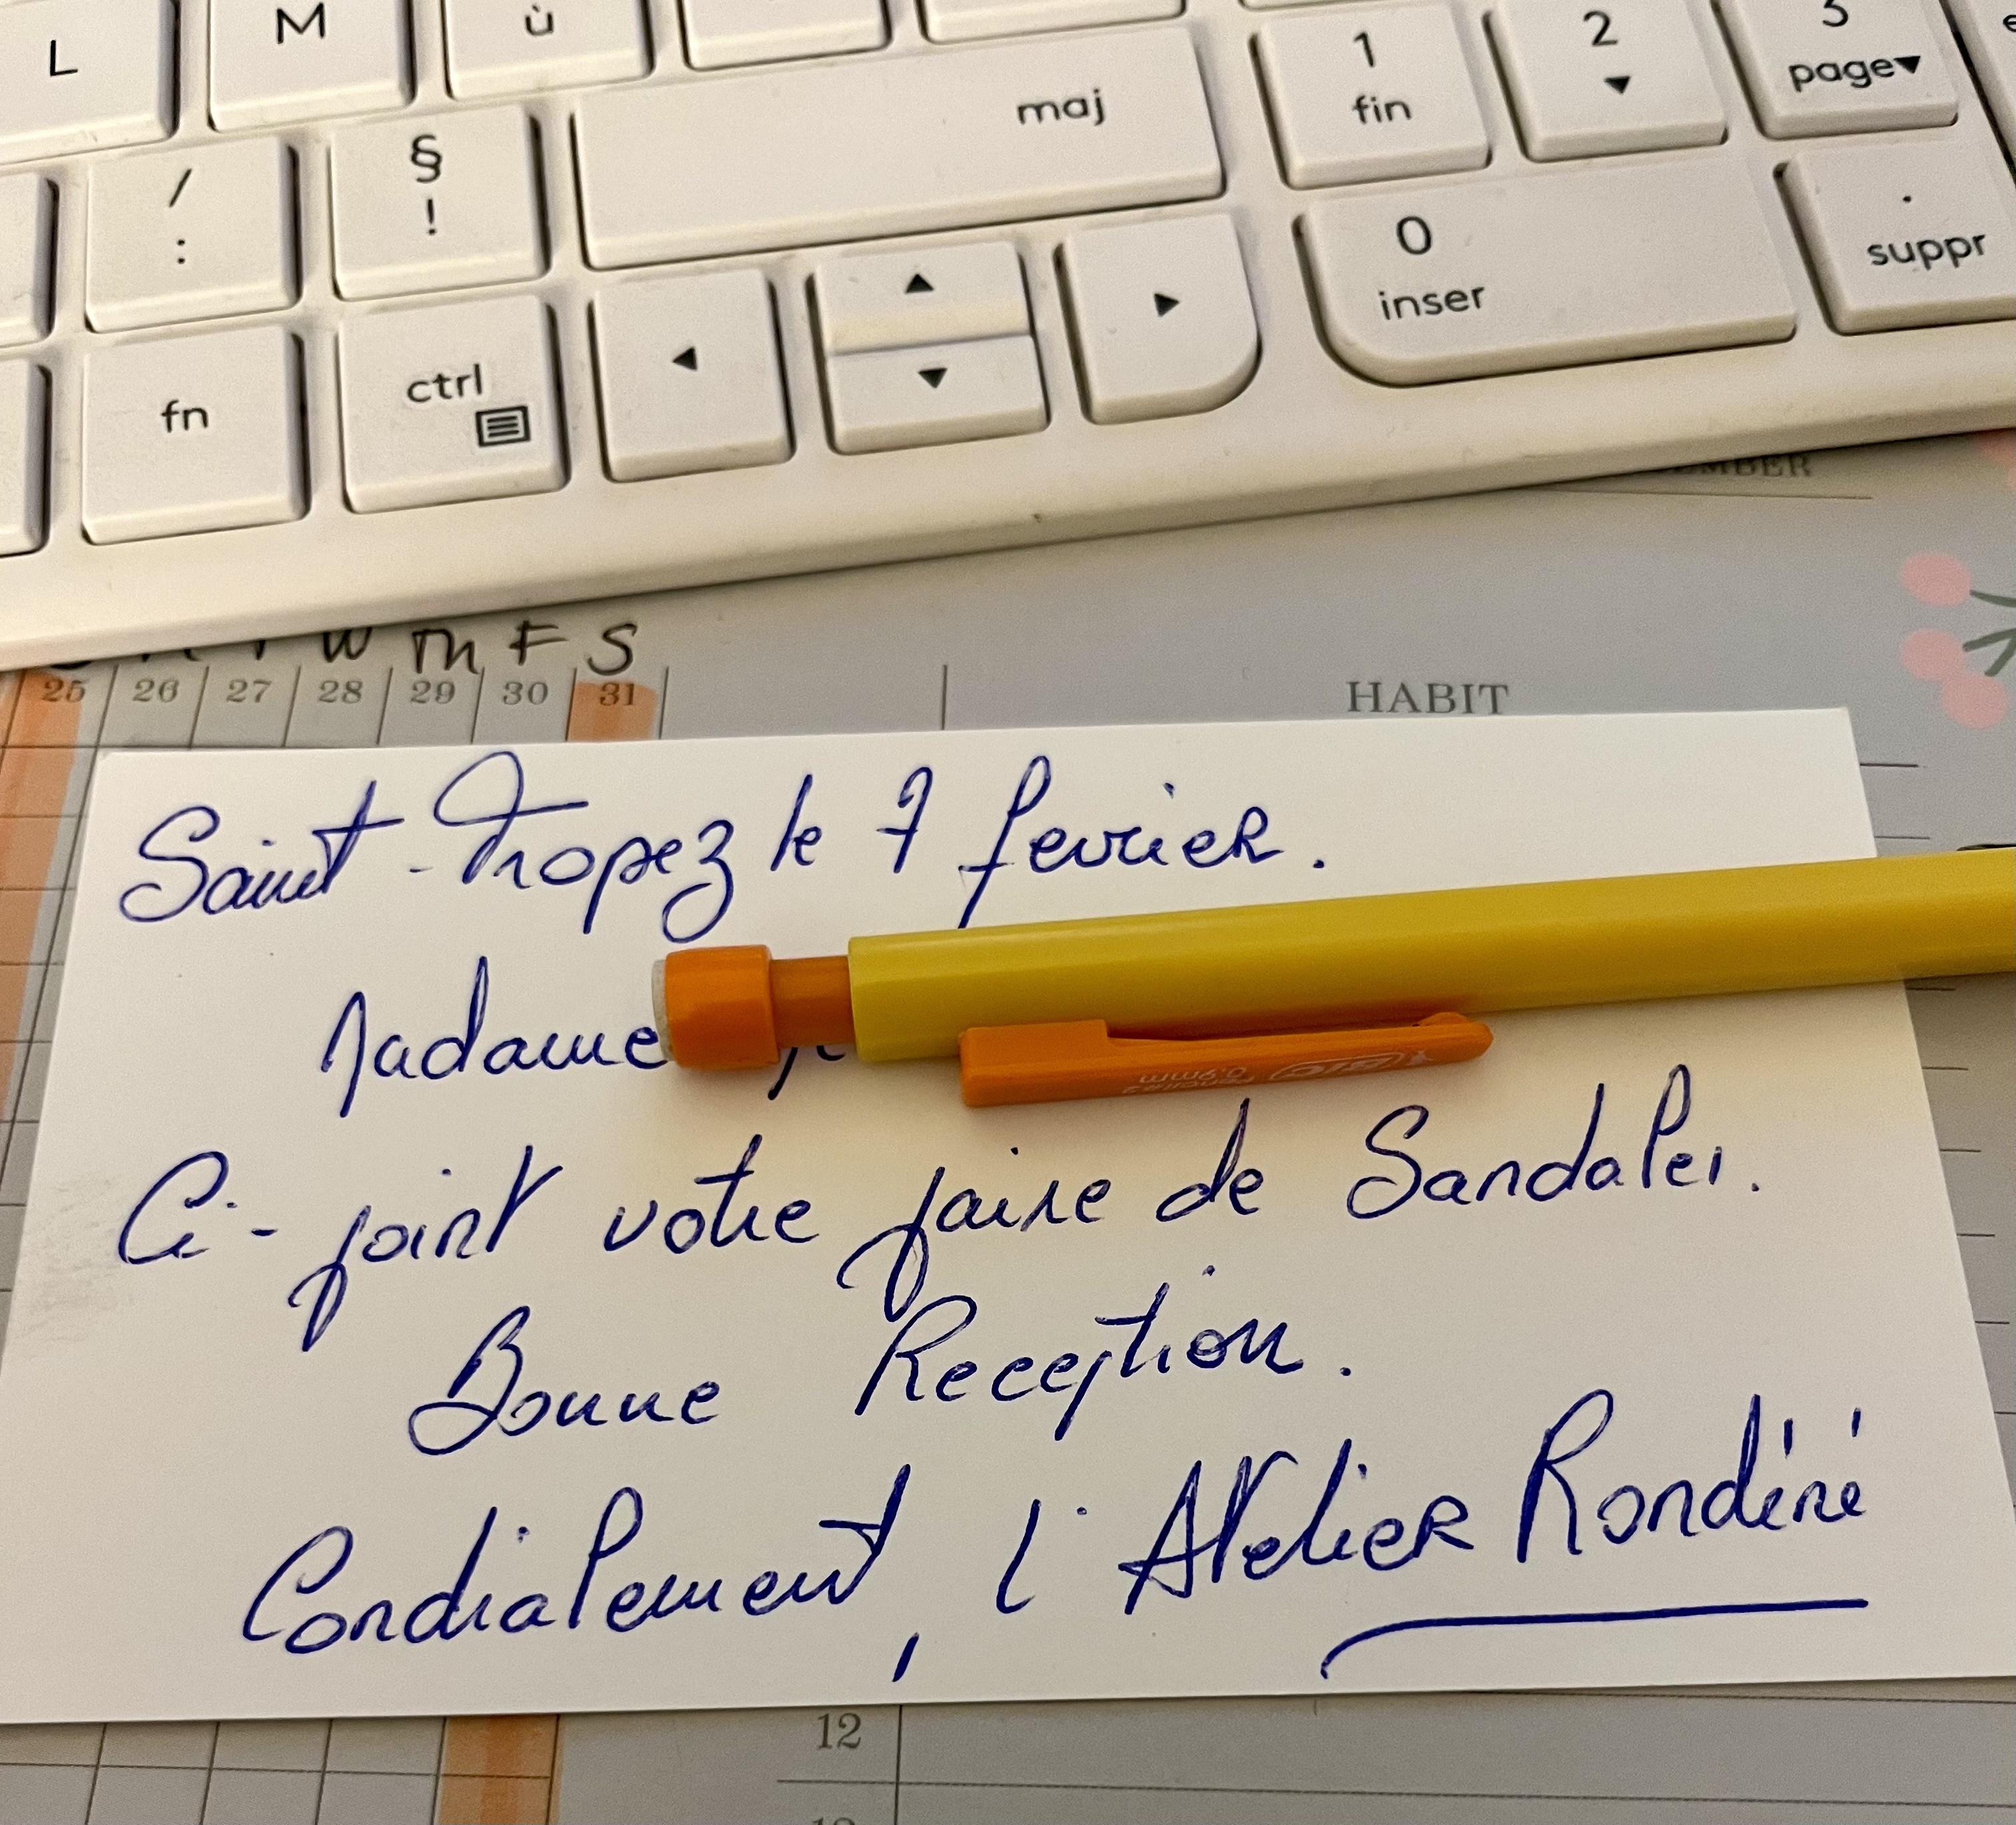 L M ù
maj
1 fin
2
3 page
/ :
§ !
0 inser
. suppr
fn
ctrl
EMBER
W Th F S
25 26 27 28 29 30 31
HABIT
Saint-Tropez le 7 fevrier.
Madame
BIC
0.9mm
Ci-joint votre paire de Sandales.
Bonne Reception.
Cordialement, l'Atelier Rondini
12